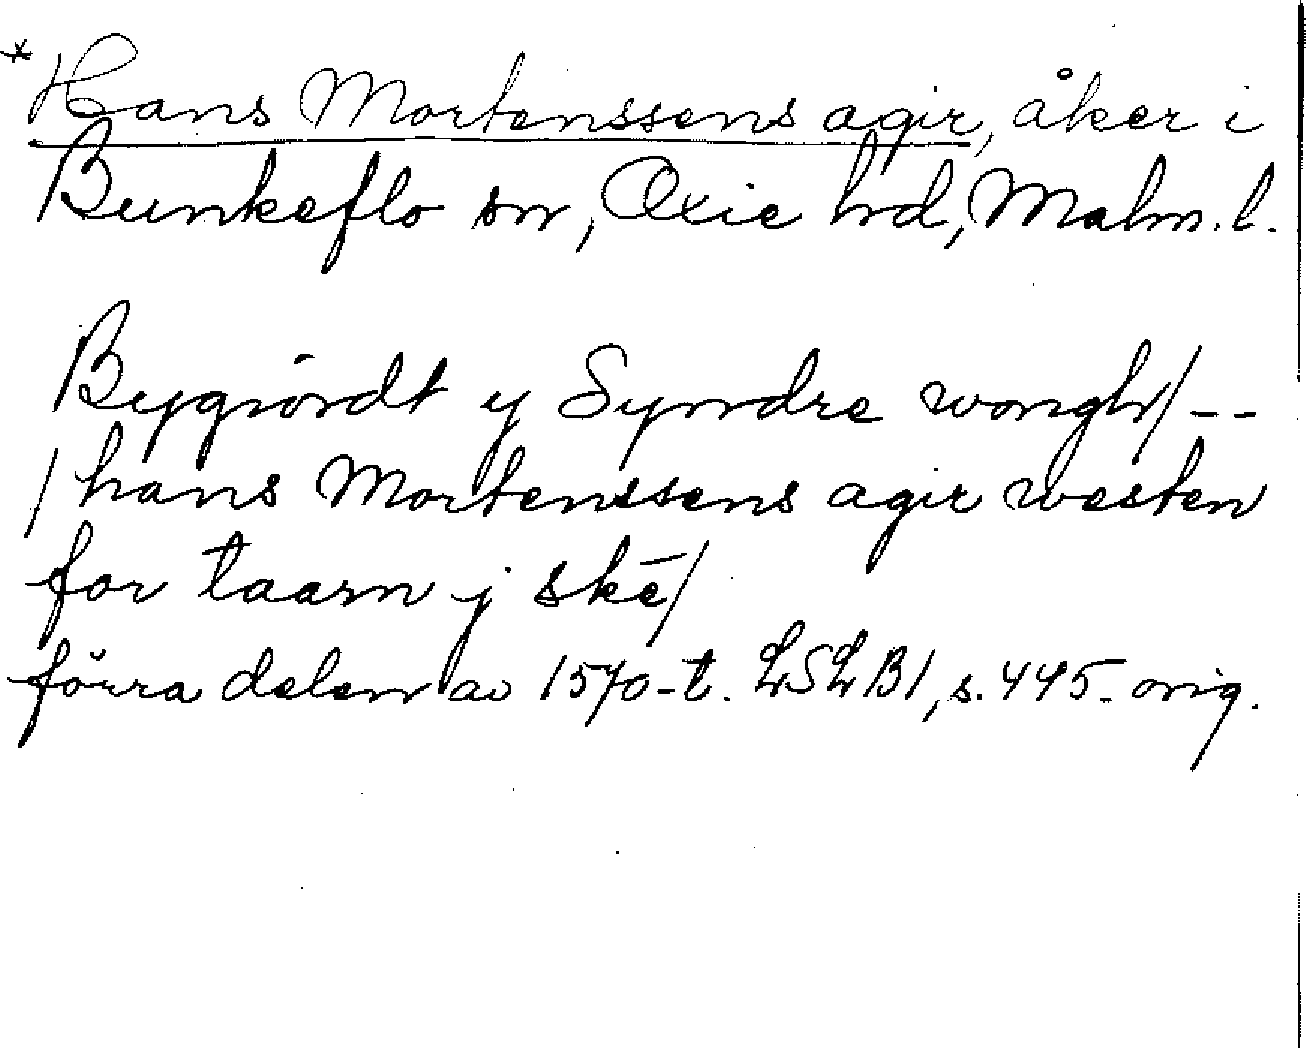 * Hans Mortenssens agir, åker i
Bunkeflo sn, Oxie hd, Malm. l.
Bygiördt y Syndre wongh/ --
/ hans Mortenssens agir westen
for taarn j skē/
förra delen av 1570-t. LSLB1, s. 445. orig.